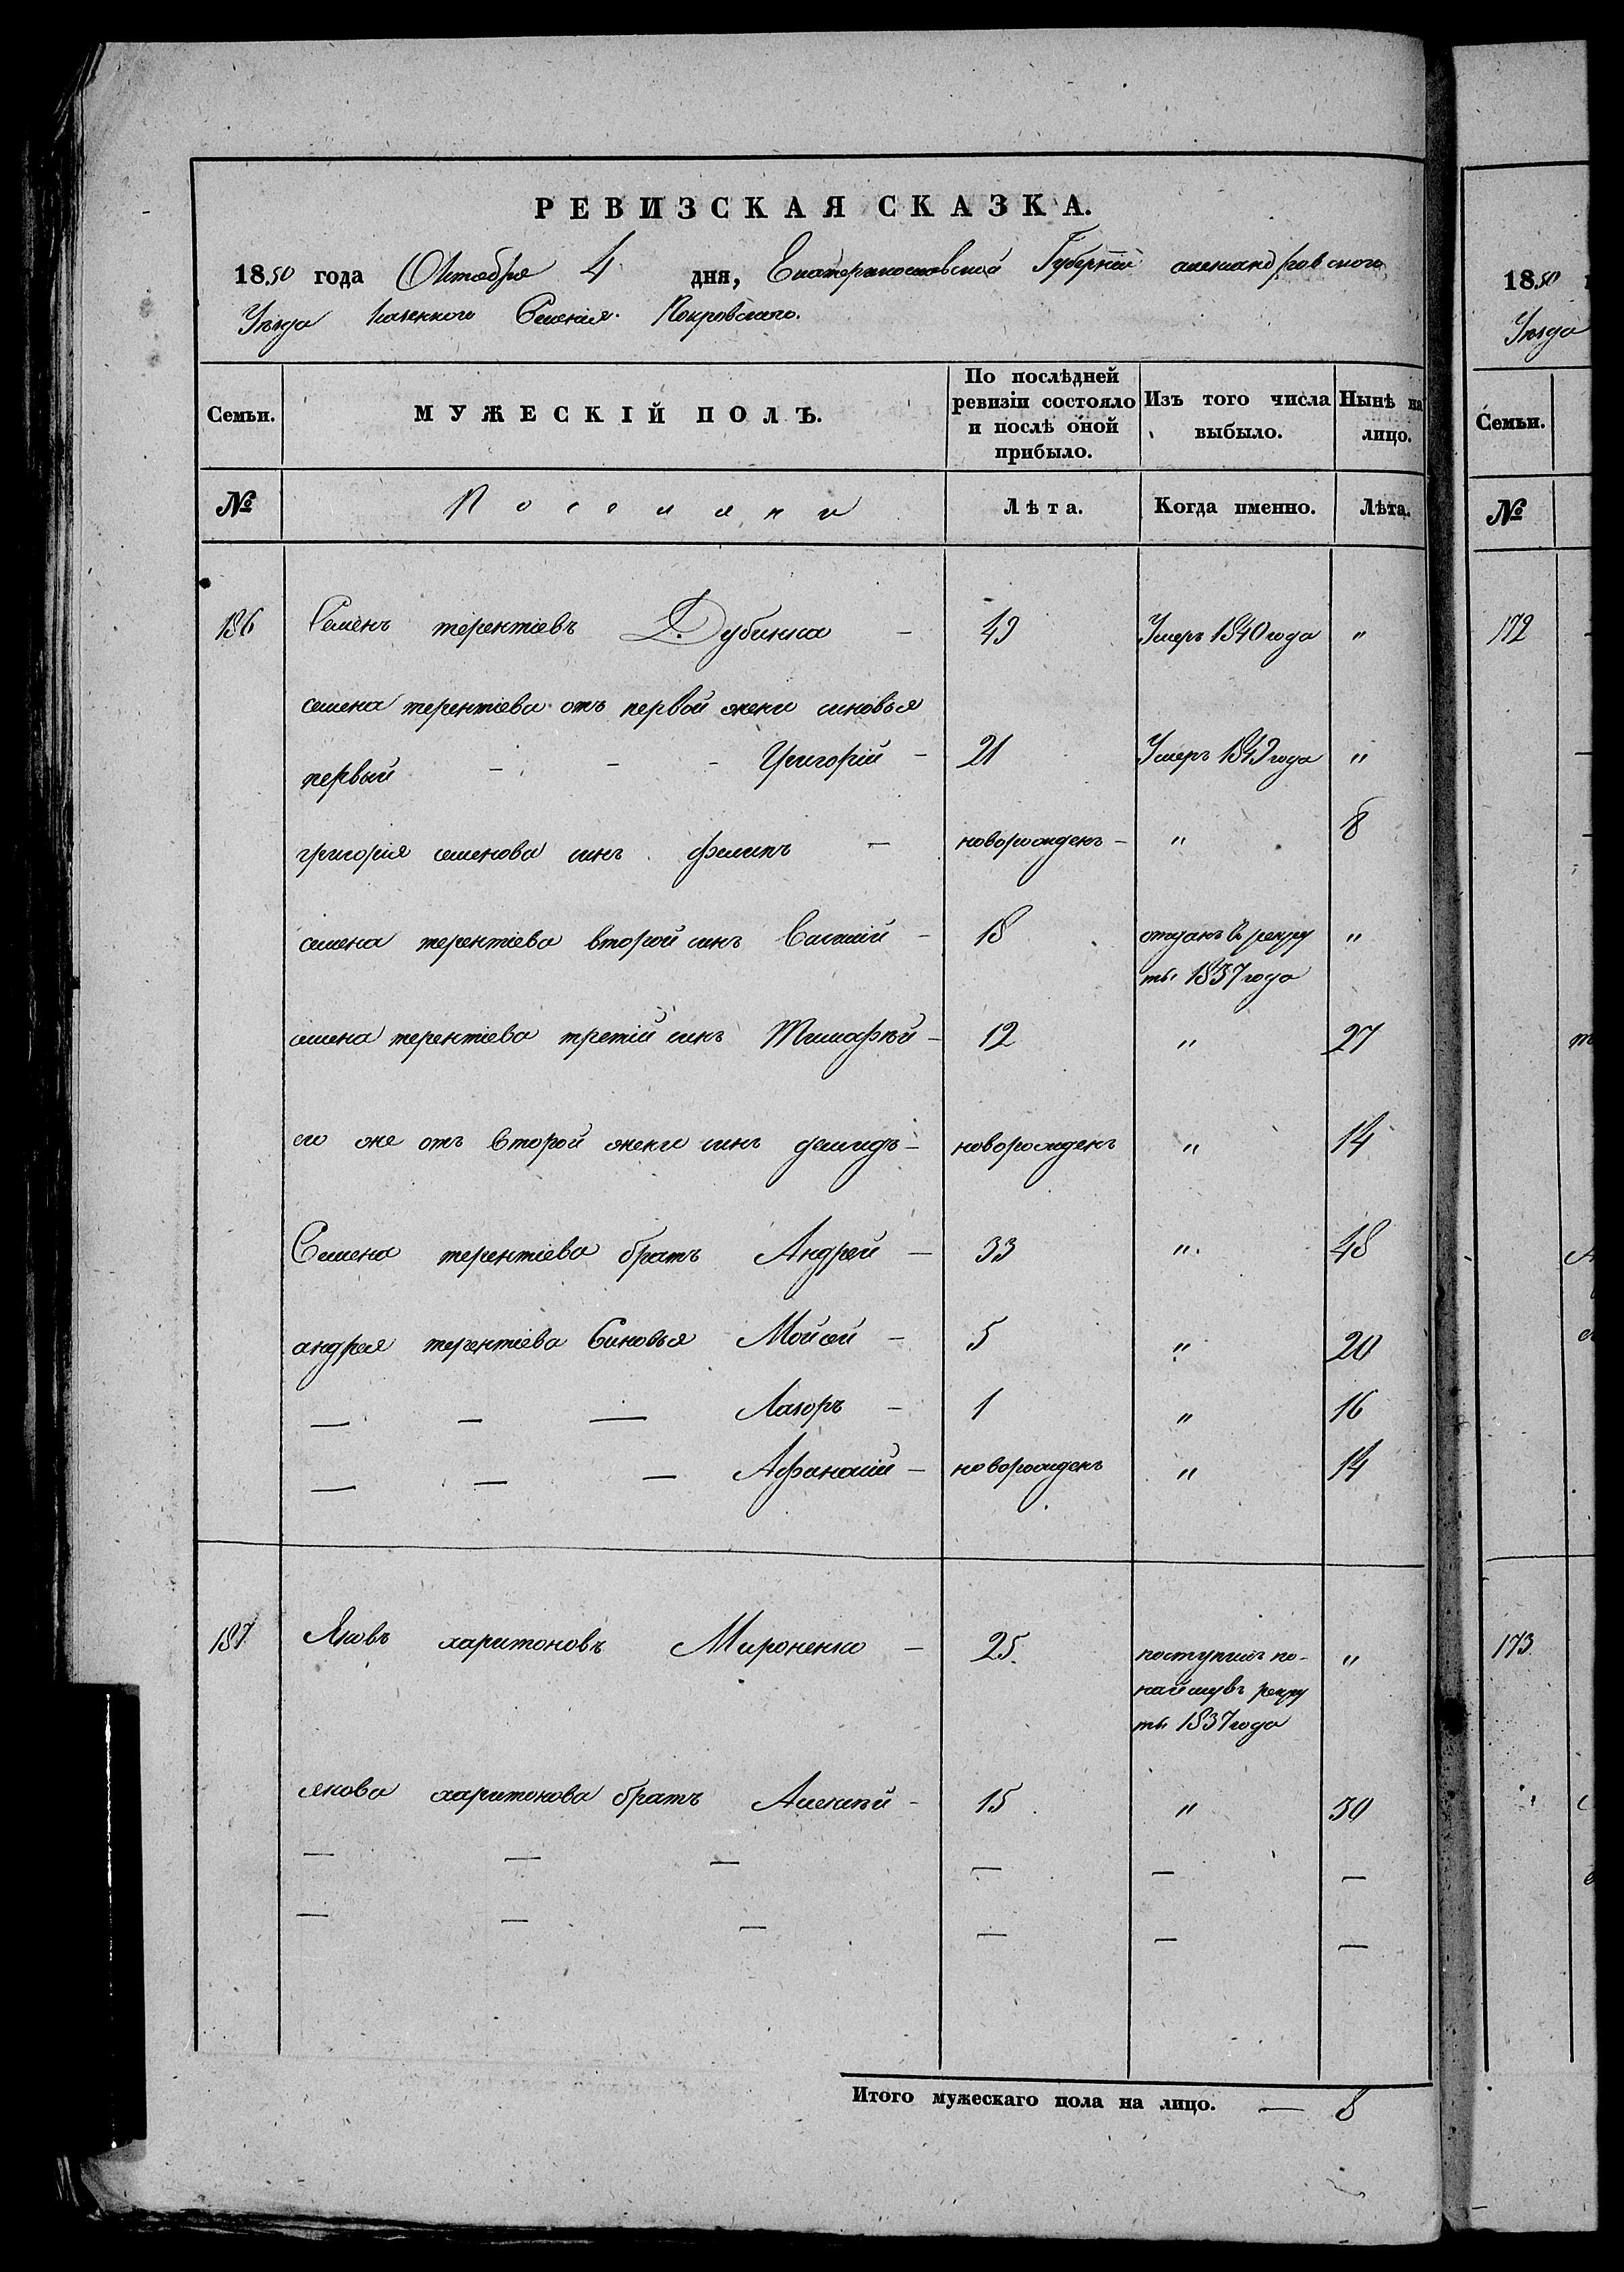 РЕВИЗСКАЯ СКАЗКА.
1850 года Октября 4 дня, Екатеринославской Губерніи александровского
Уезда казенного Селенія Покровского.
Семьи. МУЖЕСКІЙ ПОЛЪ. По послѣдней ревизіи состояло и послѣ оной прибыло. Изъ того числа выбыло. Нынѣ на лицо.
№ Поселяни Лѣта. Когда именно. Лѣта.
186 Семенъ терентіевъ Дубинка - 49 Умеръ 1840 года "
семена терентіева отъ первой жени синовья
первый - - - Григорій - 21 Умеръ 1849 года "
григорія семенова синъ филипъ - новорожденъ - " 8
семена терентіева второй синъ Василій - 18 отданъ в рекру "
ты 1837 года
семена терентіева третій синъ Тимофѣй - 12 " 27
его же отъ второй жени синъ демидъ - новорожденъ " 14
Семена терентіева братъ Андрей - 33 " 48
андрея терентіева Синовья Мойсей - 5 " 20
— — — Лазоръ - 1 " 16
— — — Афанасій - новорожденъ " 14
187 Яковъ харитоновъ Мироненко - 25. поступилъ по- "
найму въ рекру
ты 1837 года
якова харитонова братъ Алексѣй - 15 " 30
— — — — — —
— — — — — —
Итого мужескаго пола на лицо. — 8
1850
Уезда
Семьи.
№
172
173